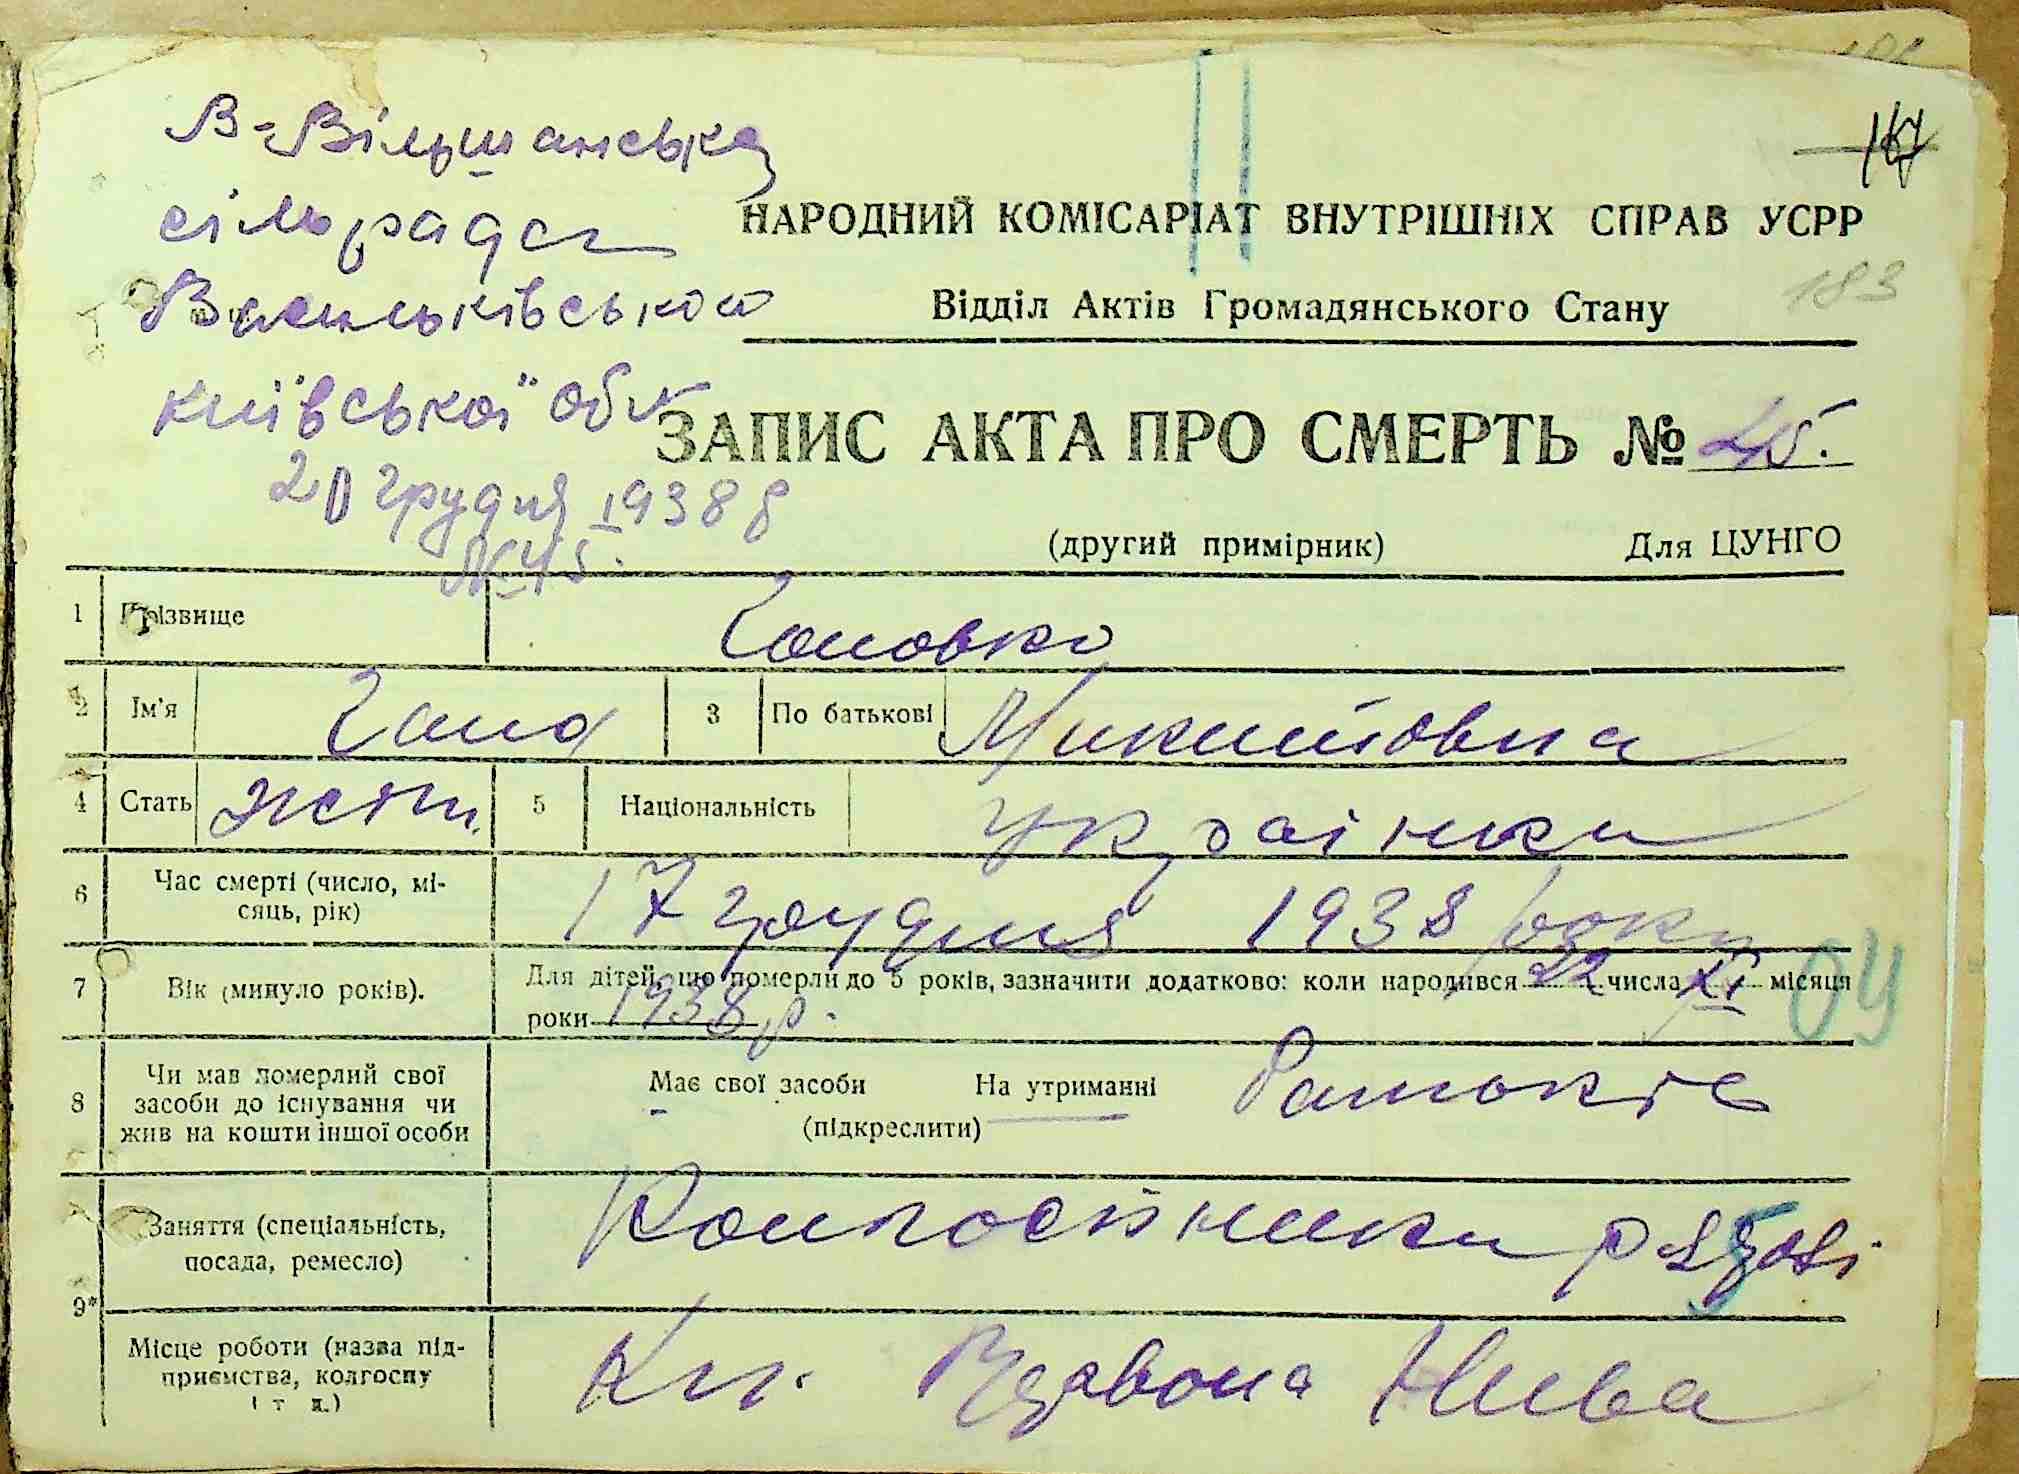 В-Вільшанська
сільрада
Васильківського
київської обл
20 грудня 1938 р
№ 45.
147
НАРОДНИЙ КОМІСАРІАТ ВНУТРІШНІХ СПРАВ УСРР
183
Відділ Актів Громадянського Стану
ЗАПИС АКТА ПРО СМЕРТЬ № 45.
(другий примірник) Для ЦУНГО
1 Прізвище Головко
2 Ім'я Гана 3 По батькові Микитовна
4 Стать жін. 5 Національність Українка
6 Час смерті (число, мі-
сяць, рік) 17 грудня 1938 року
7 Вік (минуло років). Для дітей, що померли до 5 років, зазначити додатково: коли народився 22 числа XI місяця
роки 1938 р.
04
8 Чи мав померлий свої
засоби до існування чи
жив на кошти іншої особи
Має свої засоби На утриманні батьків
(підкреслити)
9* Заняття (спеціальність,
посада, ремесло) Колгоспники рядові
Місце роботи (назва під-
приємства, колгоспу
і т д.) Кл. Червона Нива